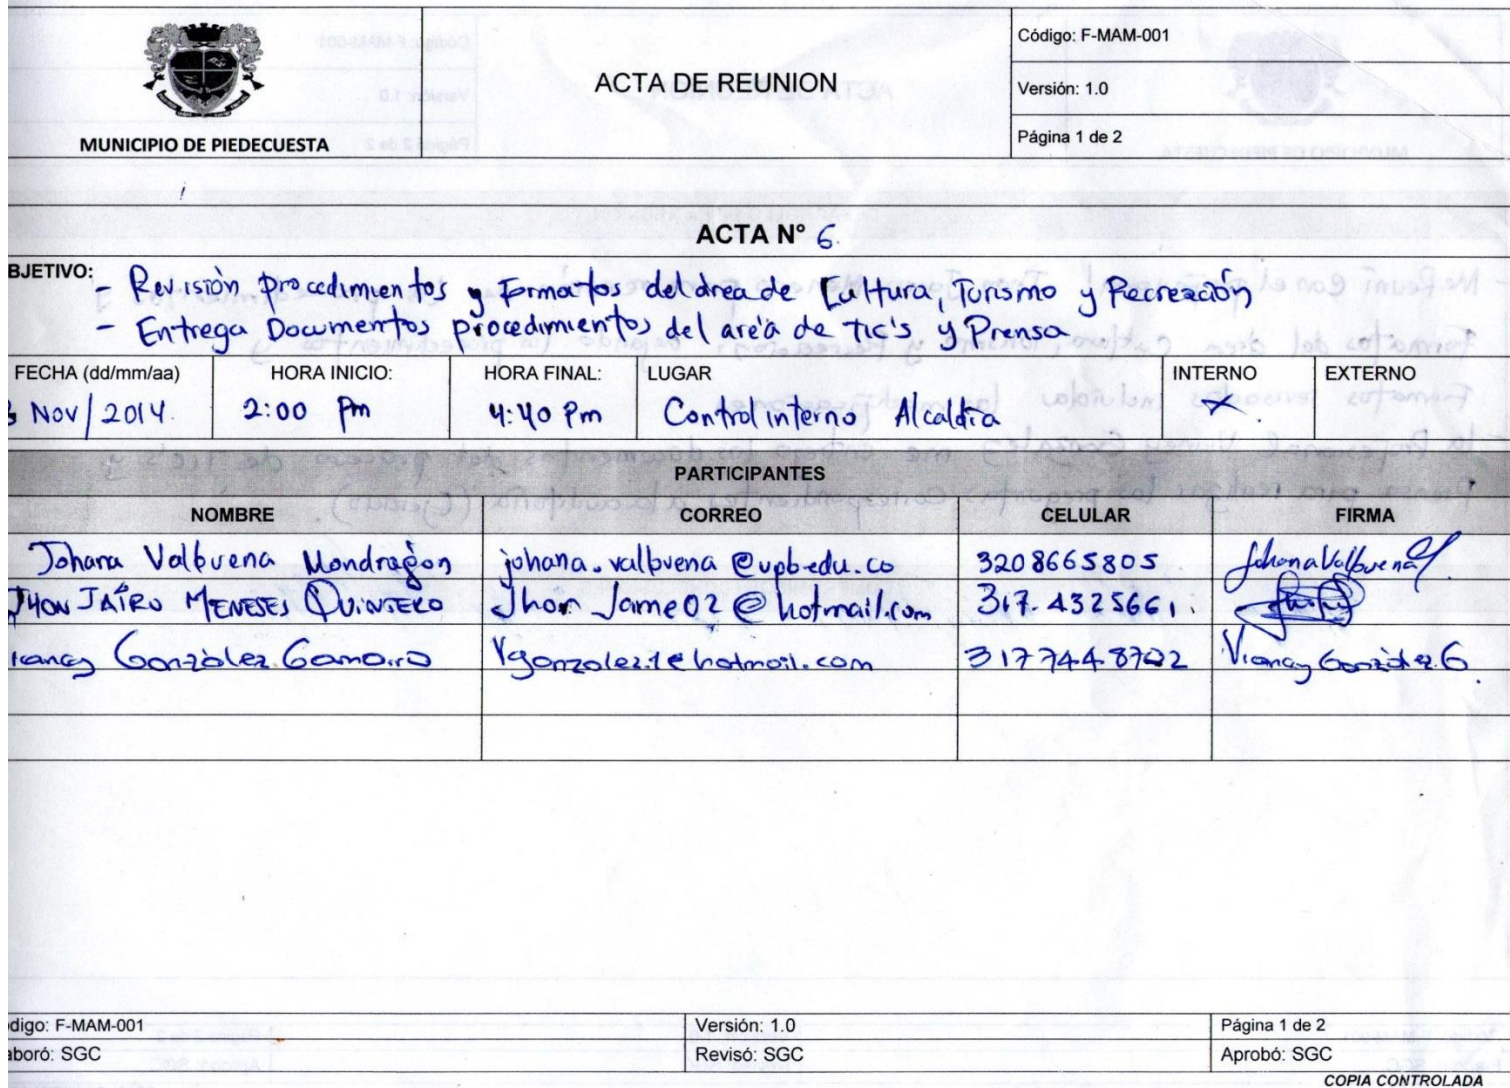 MUNICIPIO DE PIEDECUESTA
ACTA DE REUNION
Código: F-MAM-001
Versión: 1.0
Página 1 de 2
ACTA N° 6.
BJETIVO: - Revisión procedimientos y Formatos del área de Cultura, Turismo y Recreación
- Entrega Documentos procedimientos del area de TIC's y Prensa
FECHA (dd/mm/aa) HORA INICIO: HORA FINAL: LUGAR INTERNO EXTERNO
Nov/2014. 2:00 Pm 4:40 Pm Control interno Alcaldía X
PARTICIPANTES
NOMBRE CORREO CELULAR FIRMA
Johana Valbuena Mondragón johana.valbuena@upb.edu.co 3208665805 Johana Valbuena
JHON JAÍRO MENESES QUINTERO Jhon Jame02@hotmail.com 317.4325661.
ianey González Gamarra Vgonzalez1@hotmail.com 3177448702 Vianey González G.
digo: F-MAM-001 Versión: 1.0 Página 1 de 2
aboró: SGC Revisó: SGC Aprobó: SGC
COPIA CONTROLADA